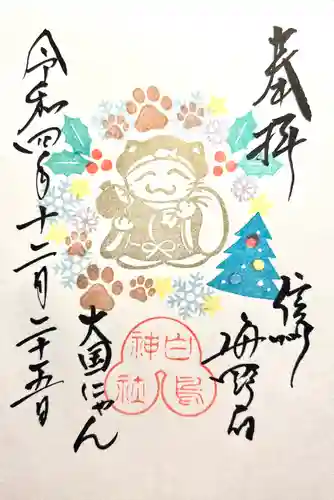 奉拝
信州
海野宿
白鳥
神社
大国にゃん
令和四年十二月二十五日